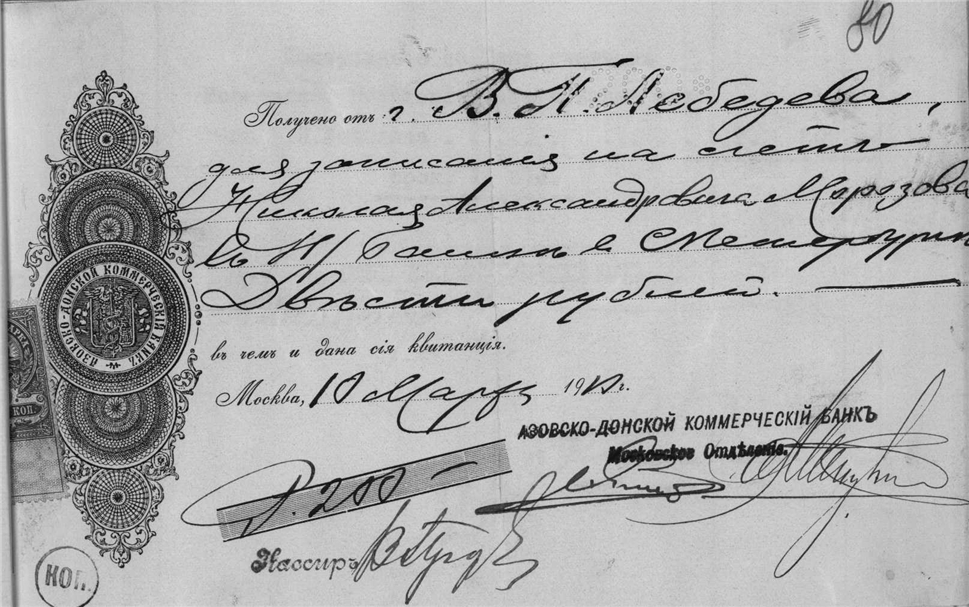 80
Получено отъ г. В. П. Лебедева,
для записанія на счетъ
Николая Александровича Морозова
въ Н/ Банкъ в СПетербургѣ
Двѣсти рублей.
АЗОВСКО-ДОНСКОЙ КОММЕРЧЕСКІЙ БАНКЪ
въ чемъ и дана сія квитанція.
Москва, 10 Марта 19 г.
АЗОВСКО-ДОНСКОЙ КОММЕРЧЕСКІЙ БАНКЪ
Московское Отдѣленіе.
Р. 200
Кассиръ
КОП.
КОП.